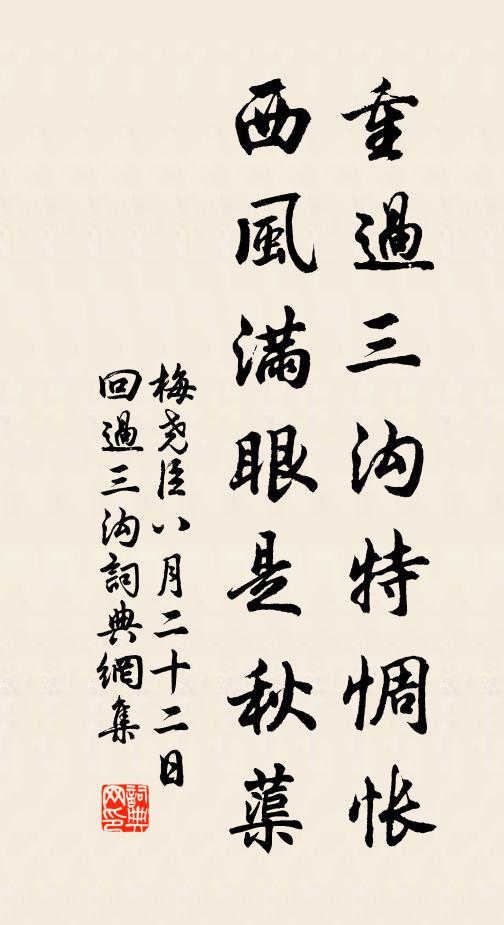 重過三沟特惆怅
西風滿眼是秋蕖
梅尧臣八月二十二日
回過三沟詞典網集
詞典网印